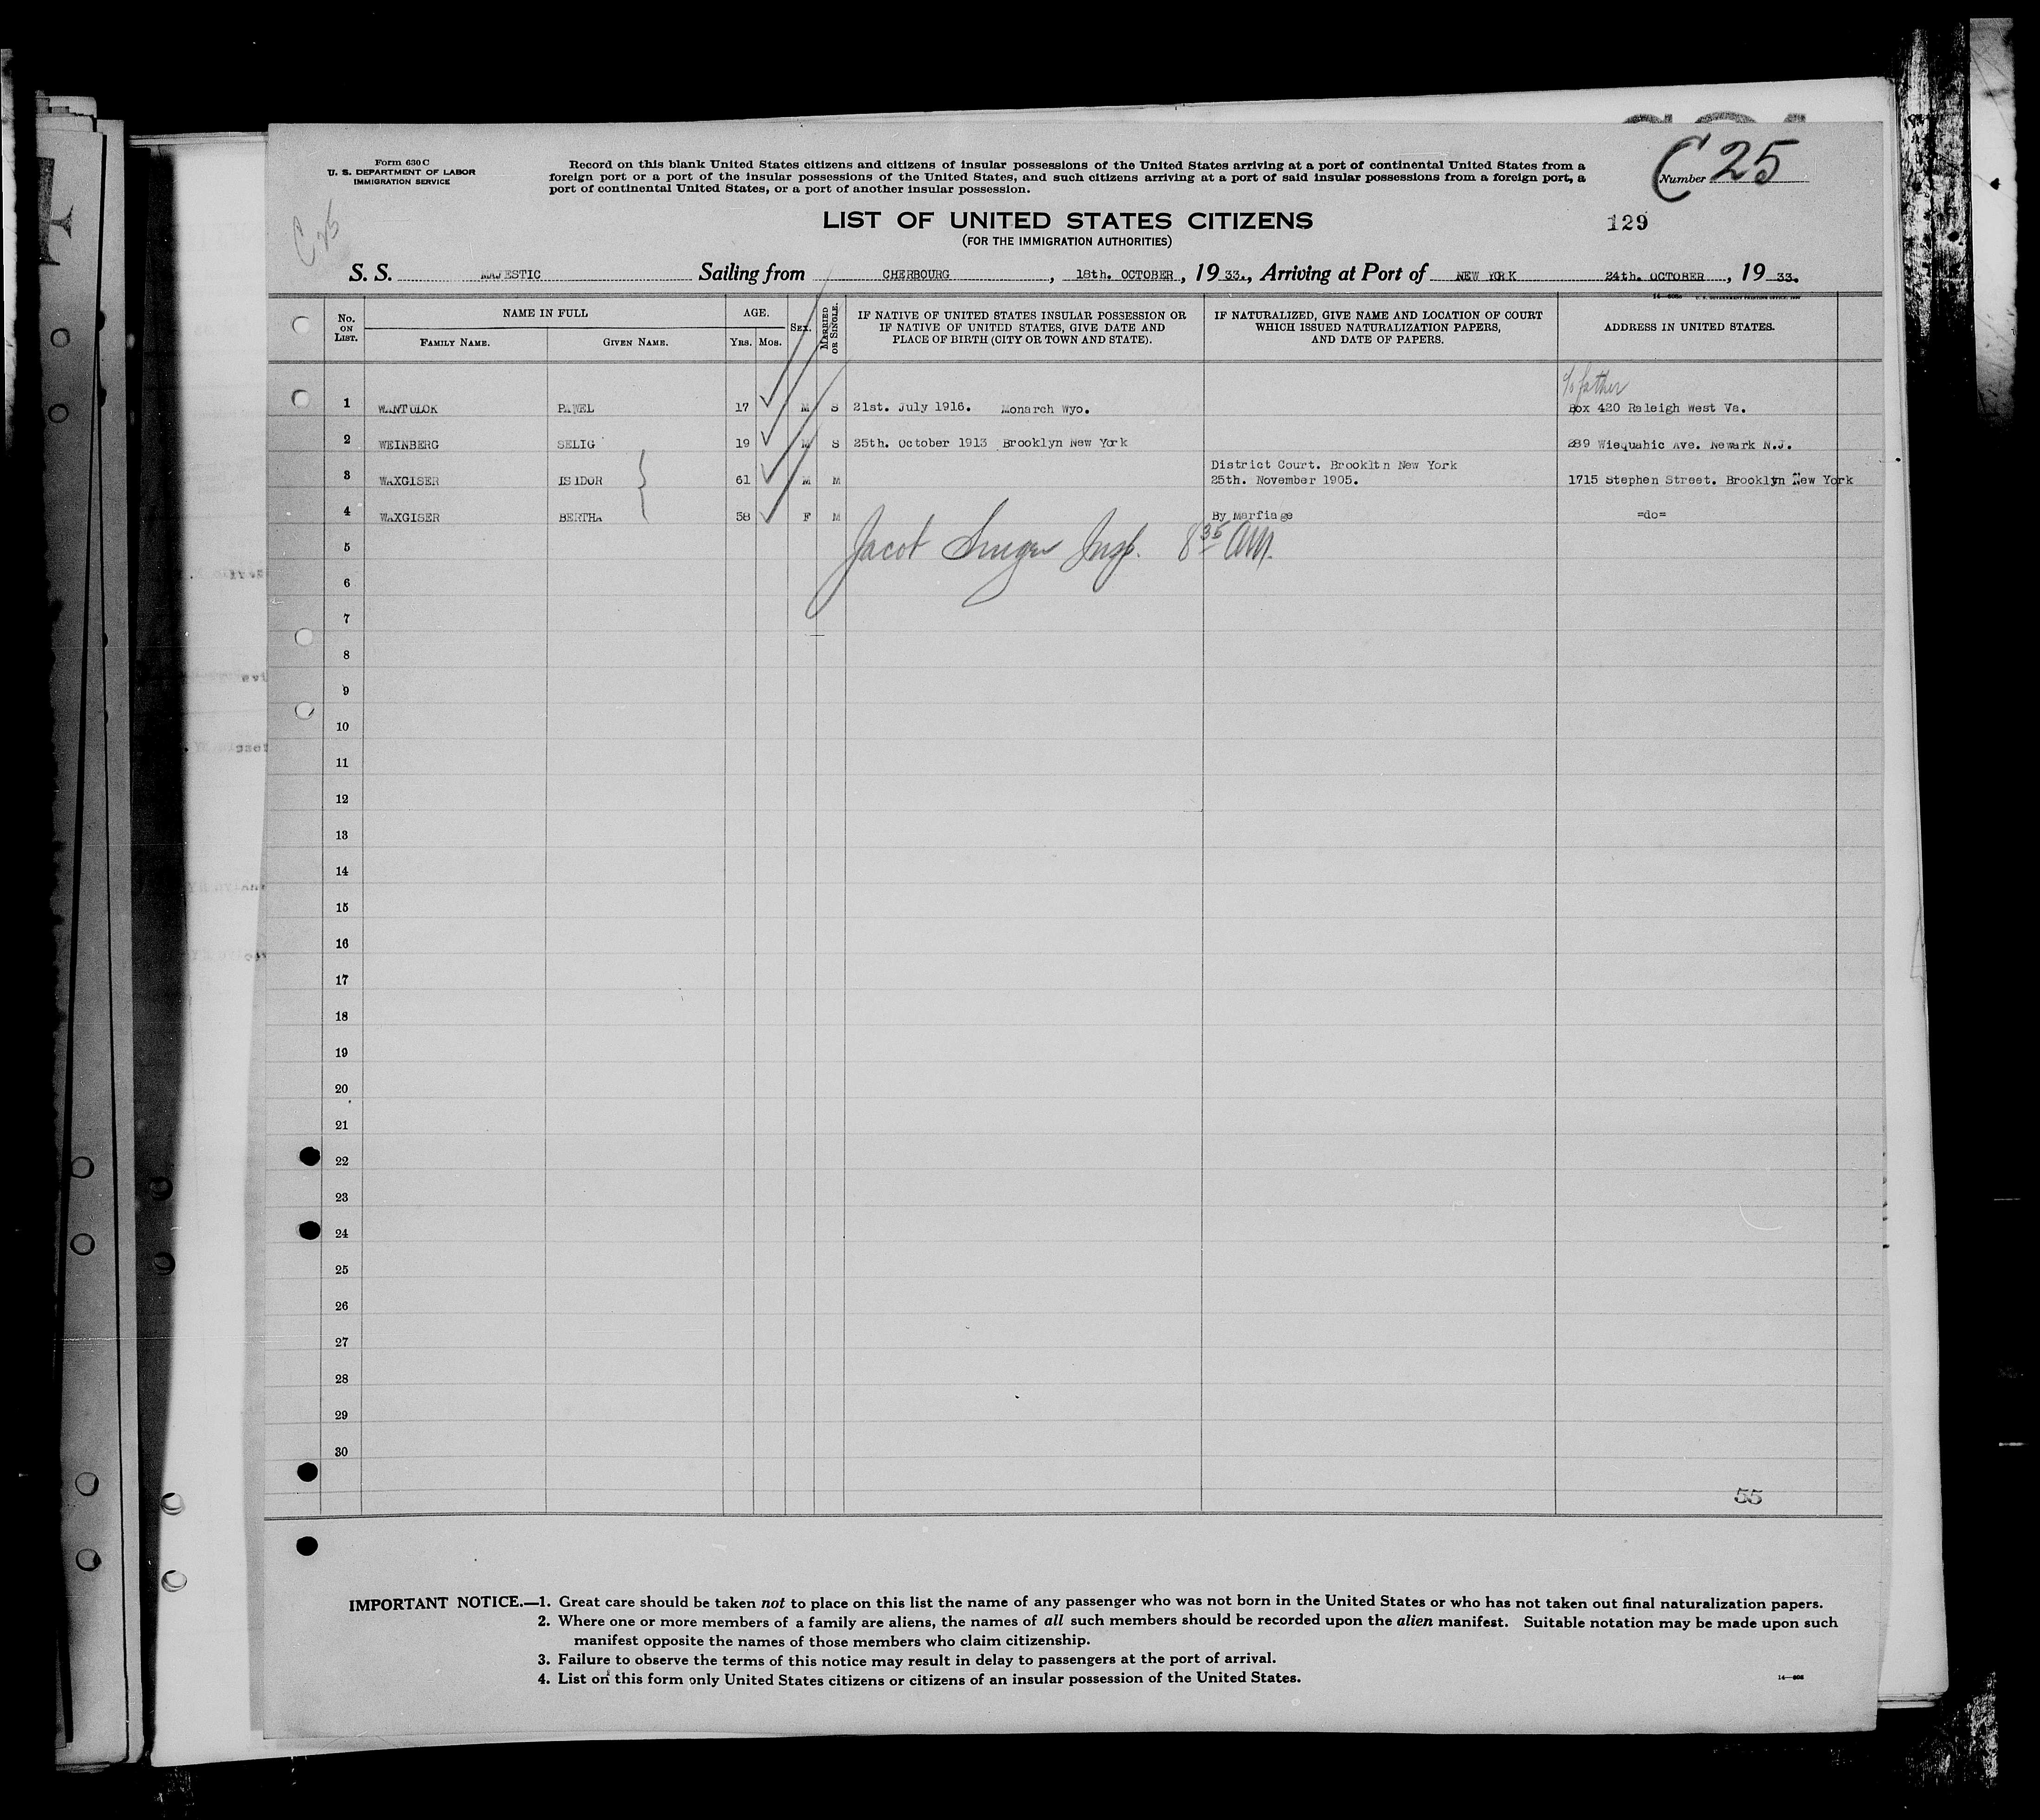 Form 630 C
U. S. DEPARTMENT OF LABOR
IMMIGRATION SERVICE
Record on this blank United States citizens and citizens of insular possessions of the United States arriving at a port of continental United States from a
foreign port or a port of the insular possessions of the United States, and such citizens arriving at a port of said insular possessions from a foreign port, a
port of continental United States, or a port of another insular possession.
Number C 25
C 25
LIST OF UNITED STATES CITIZENS
(FOR THE IMMIGRATION AUTHORITIES)
129
S. S. MAJESTIC Sailing from CHERBOURG, 18th. OCTOBER, 19 33., Arriving at Port of NEW YORK 24th. OCTOBER, 19 33.
No. ON LIST. NAME IN FULL FAMILY NAME. GIVEN NAME. AGE. YRS. MOS. SEX. MARRIED OR SINGLE. IF NATIVE OF UNITED STATES INSULAR POSSESSION OR IF NATIVE OF UNITED STATES, GIVE DATE AND PLACE OF BIRTH (CITY OR TOWN AND STATE). IF NATURALIZED, GIVE NAME AND LOCATION OF COURT WHICH ISSUED NATURALIZATION PAPERS, AND DATE OF PAPERS. ADDRESS IN UNITED STATES.
c/o father
1 WANTULOK PAWEL 17 M S 21st. July 1916. Monarch Wyo. Box 420 Raleigh West Va.
2 WEINBERG SELIG 19 M S 25th. October 1913 Brooklyn New York 289 Wiequahic Ave. Newark N.J.
District Court. Brookltn New York
3 WAXGISER ISIDOR 61 M M 25th. November 1905. 1715 Stephen Street. Brooklyn New York
4 WAXGISER BERTHA 58 F M By Marfiage =do=
5 Jacob Singer Insp. 8 35 AM.
6
7
8
9
10
11
12
13
14
15
16
17
18
19
20
21
22
23
24
25
26
27
28
29
30
55
IMPORTANT NOTICE.—1. Great care should be taken not to place on this list the name of any passenger who was not born in the United States or who has not taken out final naturalization papers.
2. Where one or more members of a family are aliens, the names of all such members should be recorded upon the alien manifest. Suitable notation may be made upon such
manifest opposite the names of those members who claim citizenship.
3. Failure to observe the terms of this notice may result in delay to passengers at the port of arrival.
4. List on this form only United States citizens or citizens of an insular possession of the United States.